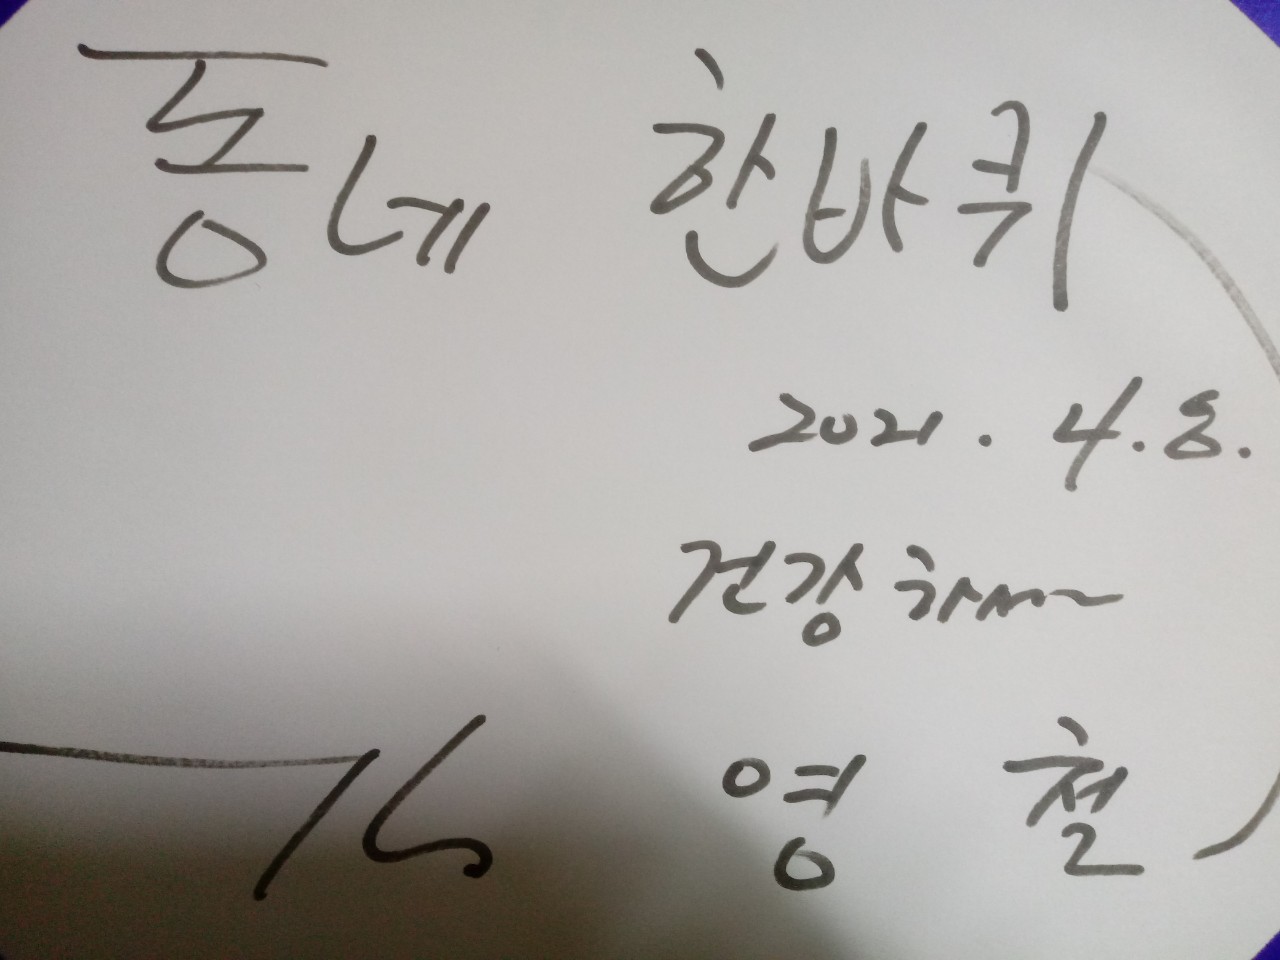 동네 한바퀴
2021. 4. 8.
건강하세요
김 영 철